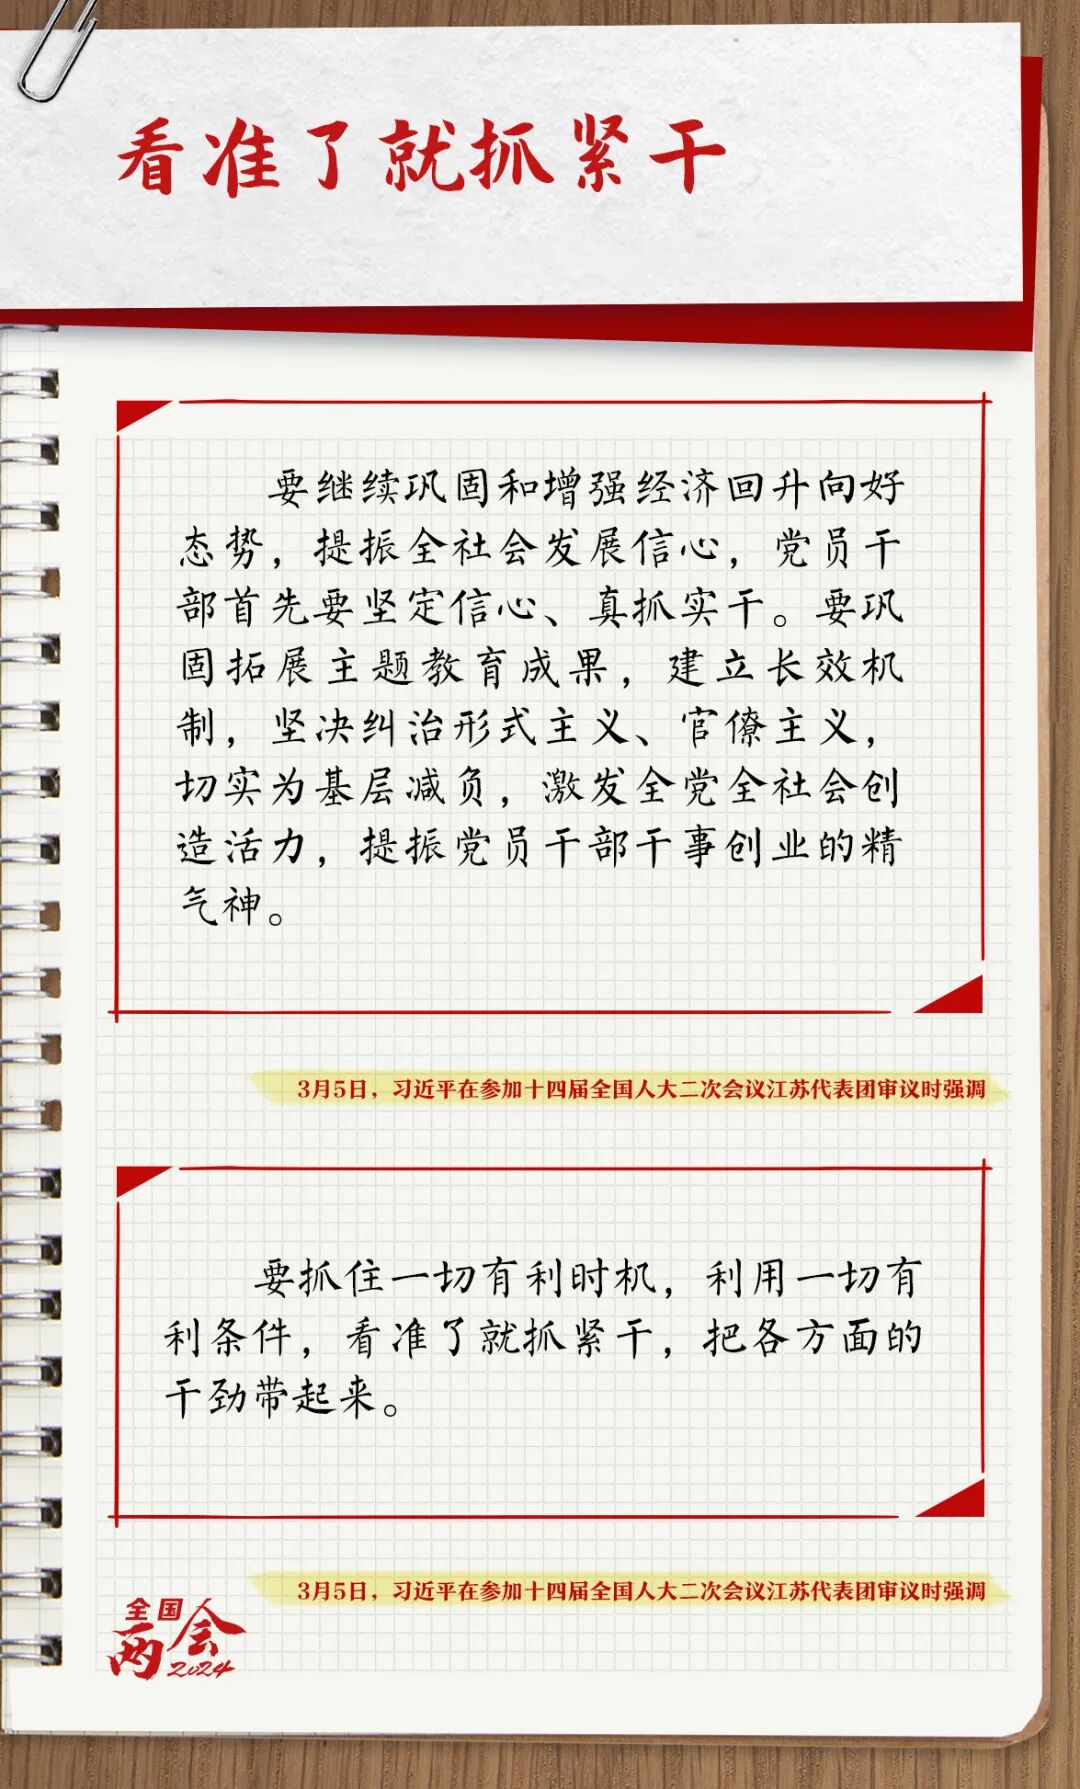 看准了就抓紧干
要继续巩固和增强经济回升向好
态势，提振全社会发展信心，党员干
部首先要坚定信心、真抓实干。要巩
固拓展主题教育成果，建立长效机
制，坚决纠治形式主义、官僚主义，
切实为基层减负，激发全党全社会创
造活力，提振党员干部干事创业的精
气神。
3月5日，习近平在参加十四届全国人大二次会议江苏代表团审议时强调
要抓住一切有利时机，利用一切有
利条件，看准了就抓紧干，把各方面的
干劲带起来。
3月5日，习近平在参加十四届全国人大二次会议江苏代表团审议时强调
全国
两会
2024